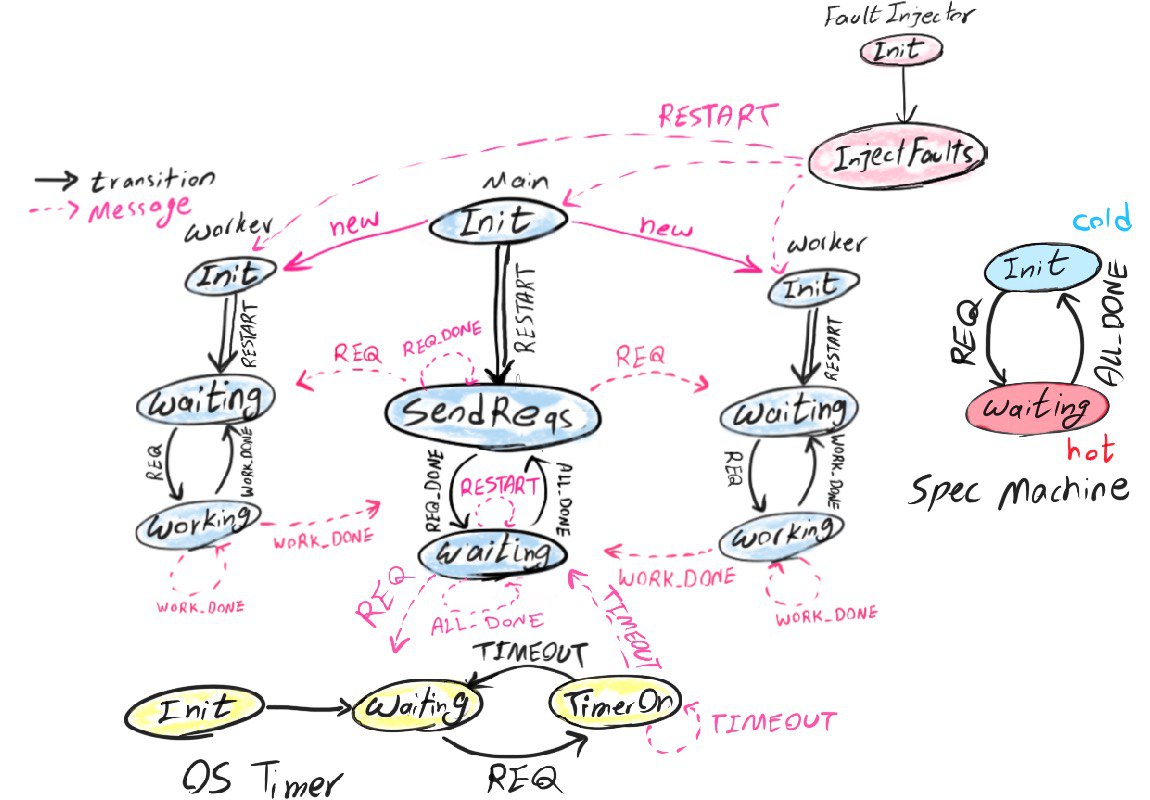 Fault Injector
Init
RESTART
InjectFaults
transition
Message
Main
Init
new
new
Worker
Init
Worker
Init
cold
Init
RESTART
RESTART
RESTART
REQ
REQ_DONE
REQ
REQ
ALL_DONE
Waiting
SendReqs
Waiting
Waiting
hot
REQ
WORK_DONE
REQ_DONE
RESTART
ALL_DONE
REQ
WORK_DONE
Spec Machine
Working
WORK_DONE
Waiting
Working
WORK_DONE
WORK_DONE
REQ
ALL_DONE
TIMEOUT
WORK_DONE
TIMEOUT
Init
Waiting
TimerOn
TIMEOUT
OS Timer
REQ